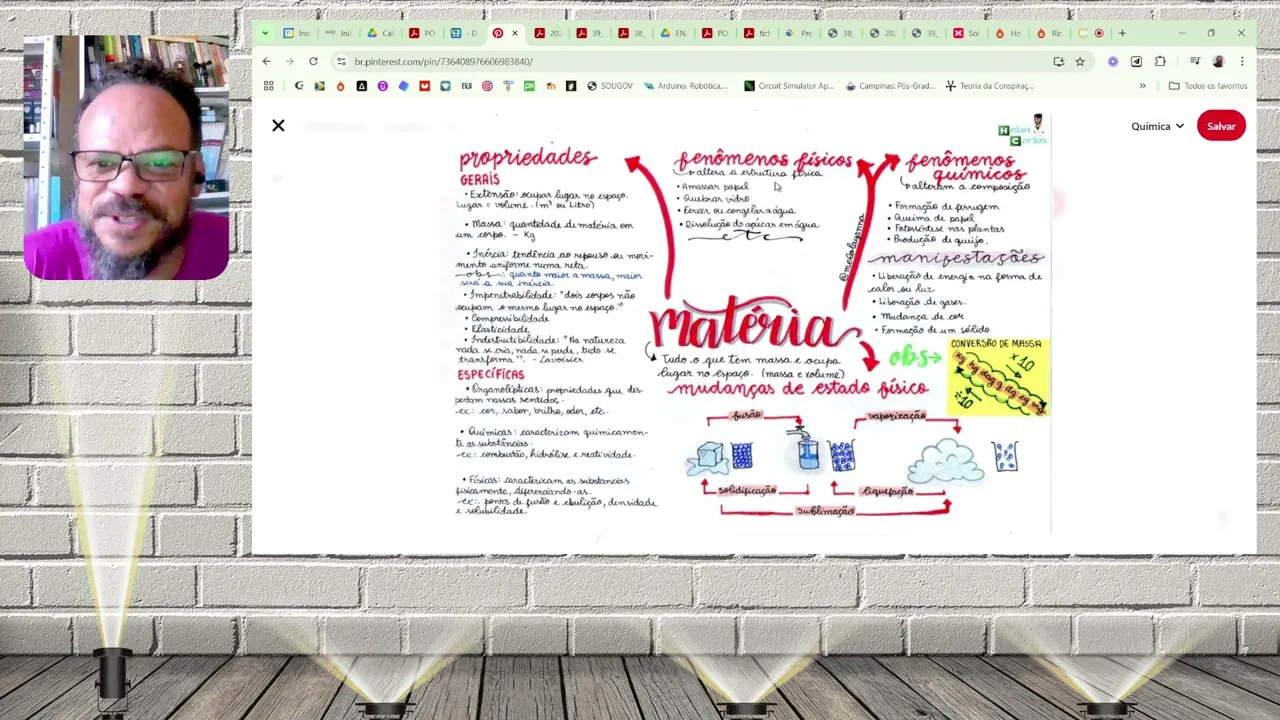 Cal
PO
D
202
39_
38_
EN
PO
fich
Pro
38_
202
39_
Sol
Ho
Ric
br.pinterest.com/pin/736408976606983840/
SOUGOV
Arduino, Robótica,...
Circuit Simulator Ap...
Campinas: Pós-Grad...
Teoria da Conspiraç...
Todos os favoritos
Química
Salvar
Helan
Carlos
propriedades
GERAIS
• Extensão: ocupar lugar no espaço.
Lugar = volume. (m³ ou Litro)
• Massa: quantidade de matéria em
um corpo. - Kg
• Inércia: tendência ao repouso ou movi-
mento uniforme numa reta.
obs.: quanto maior a massa, maior
será a sua inércia
• Impenetrabilidade: "dois corpos não
ocupam o mesmo lugar no espaço."
• Compressibilidade
• Elasticidade
• Indestrutibilidade: "Na natureza
nada se cria, nada se perde, tudo se
transforma". - Lavoisier
ESPECÍFICAS
• Organolépticas: propriedades que des-
pertam nossos sentidos.
ex: cor, sabor, brilho, odor, etc.
• Químicas: caracterizam quimicamen-
te as substâncias.
ex: combustão, hidrólise e reatividade.
• Físicas: caracterizam as substâncias
fisicamente, diferenciando-as.
ex: pontos de fusão e ebulição, densidade
e solubilidade.
fenômenos físicos
altera a estrutura física
• Amassar papel
• Quebrar vidro
• Ferver ou congelar a água
• Dissolução do açúcar em água
etc
fenômenos
químicos
alteram a composição
• Formação de ferrugem
• Queima de papel
• Fotossíntese nas plantas
• Produção de queijo.
manifestações
• Liberação de energia na forma de
calor ou luz
• Liberação de gases.
• Mudança de cor
• Formação de um sólido
matéria
Tudo o que tem massa e ocupa
lugar no espaço. (massa e volume)
obs
CONVERSÃO DE MASSA
x10
kg hg dag g dg cg mg
÷10
mudanças de estado físico
fusão
vaporização
solidificação
liquefação
sublimação